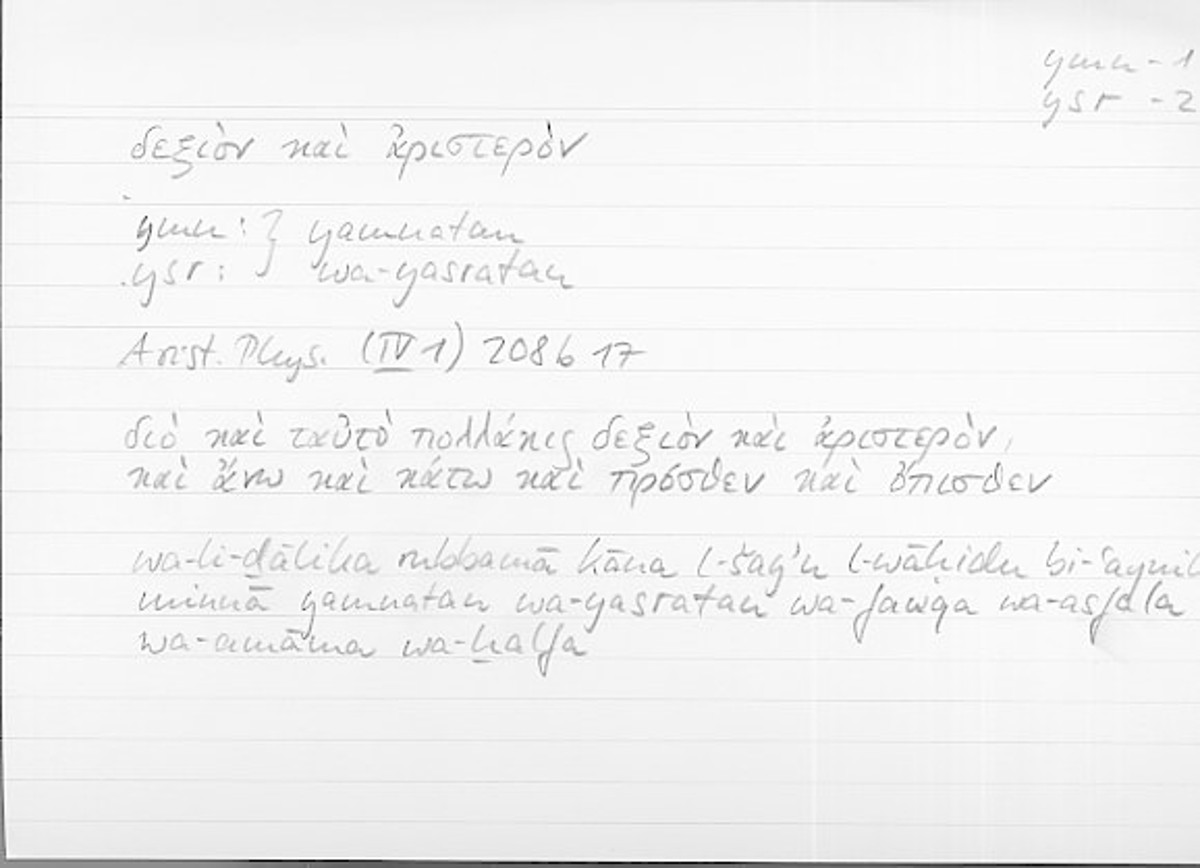 ymn - 1
ysr - 2
δεξιὸν καὶ ἀριστερὸν
ymn : } yamnatan
ysr : } wa-yasratan
Arist. Phys. (IV 1) 208b 17
διὸ καὶ ταὐτὸ πολλάκις δεξιὸν καὶ ἀριστερὸν,
καὶ ἄνω καὶ κάτω καὶ πρόσθεν καὶ ὄπισθεν
wa-li-ḏālika rubbamā kāna l-šayʾu l-wāḥidu bi-ʿaynih
minnā yamnatan wa-yasratan wa-fawqa wa-asfala
wa-amāma wa-ḫalfa